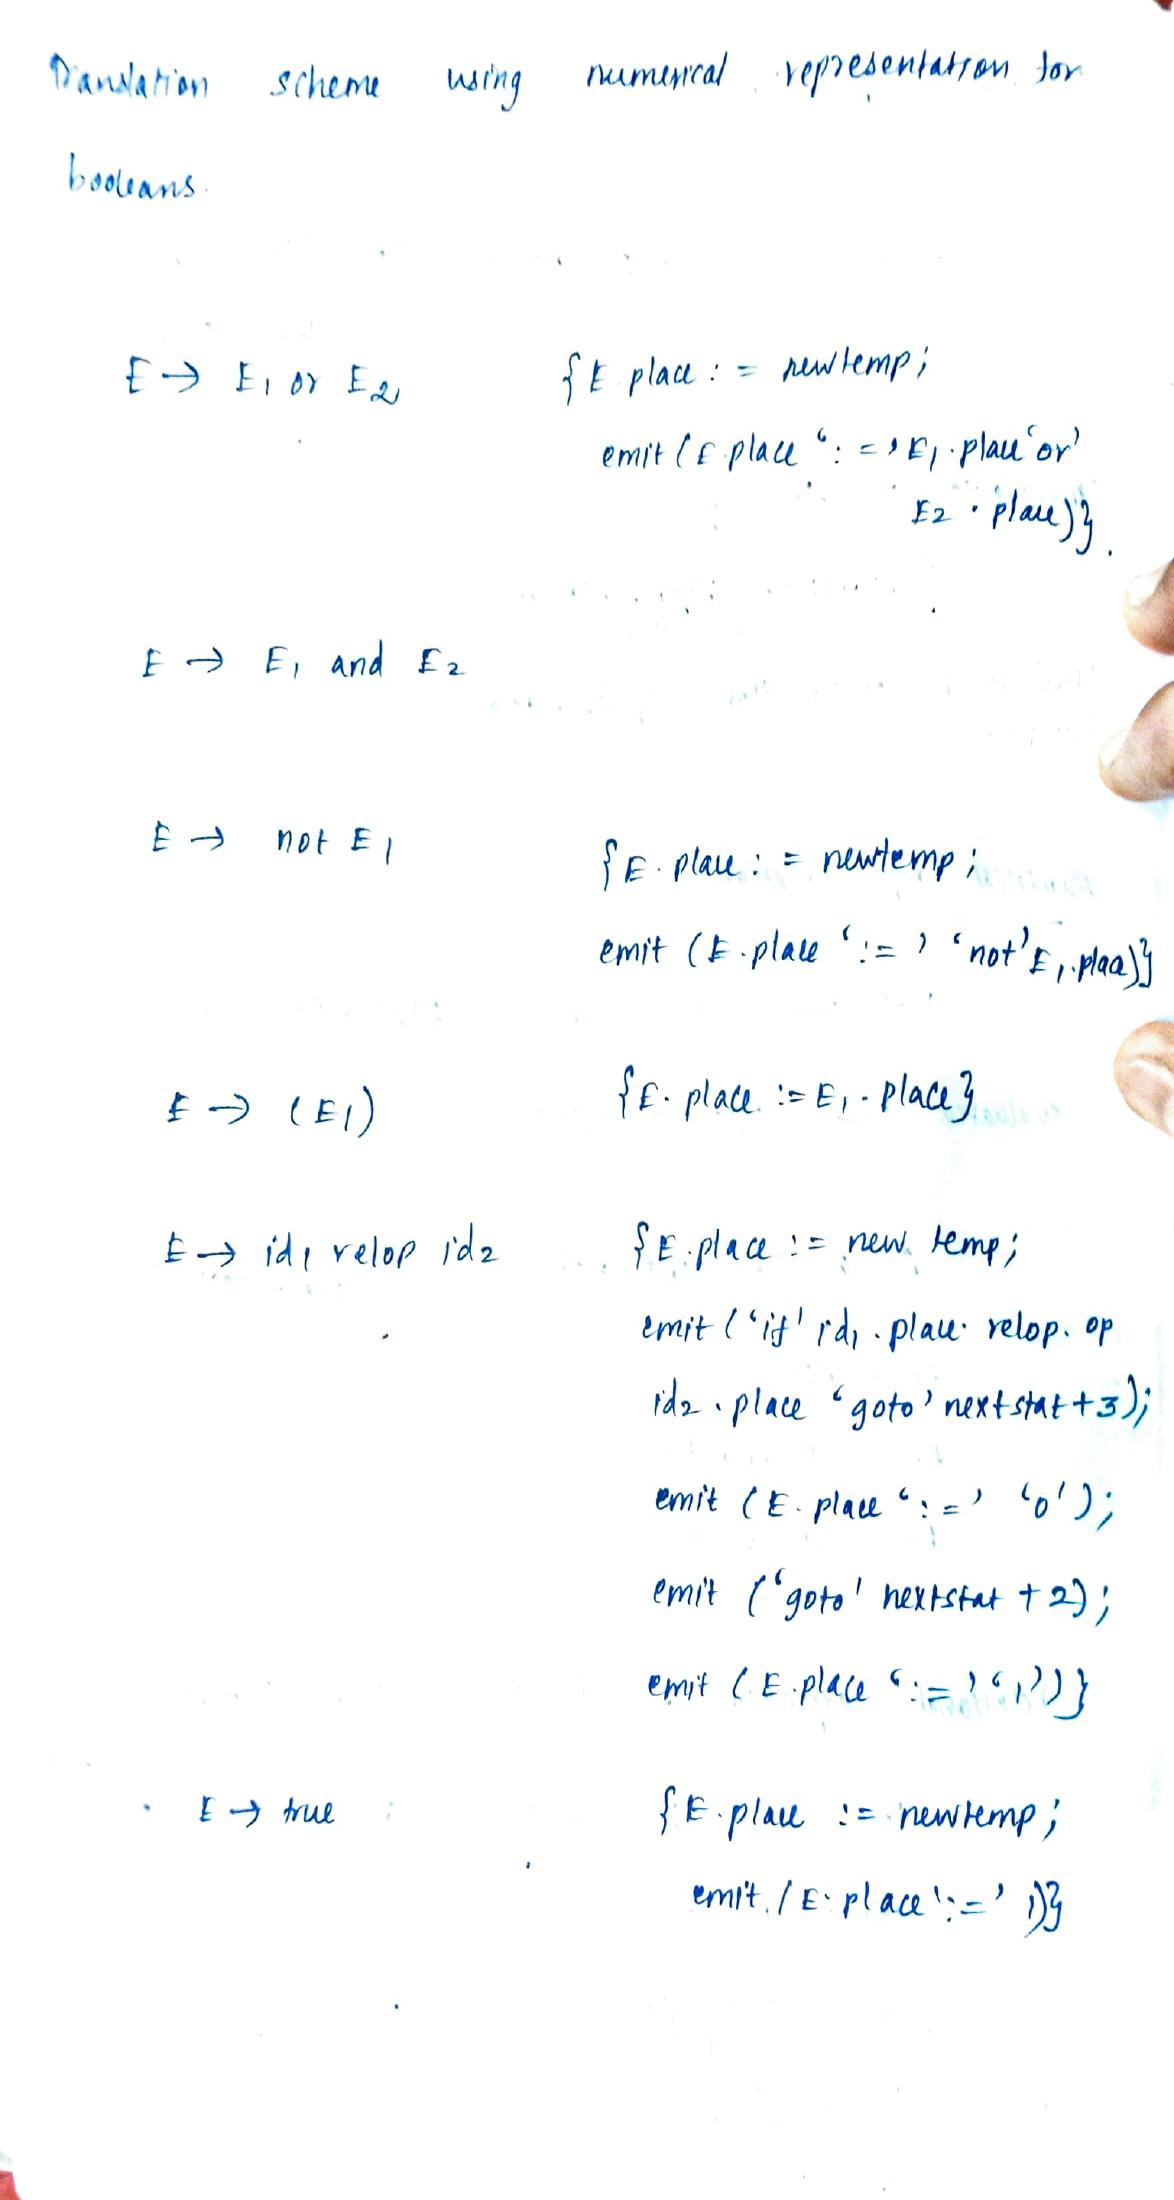 Translation scheme using numerical representation for
booleans.
E → E1 or E2 {E place : = newtemp;
emit (E place ‘: =’ E1 . place ‘or’
E2 . place)}.
E → E1 and E2
E → not E1 {E. place : = newtemp;
emit (E .place ‘:=’ ‘not’ E1 .place)}
E → (E1) {E. place := E1 . place}
E → id1 relop id2 {E .place := new temp;
emit (‘if’ id1 . place relop. op
id2 . place ‘goto’ nextstat +3);
emit (E. place ‘: =’ ‘0’);
emit (‘goto’ nextstat + 2);
emit (E .place ‘:=’ ‘1’)}
E → true {E. place := newtemp;
emit (E. place ‘:=’ 1)}